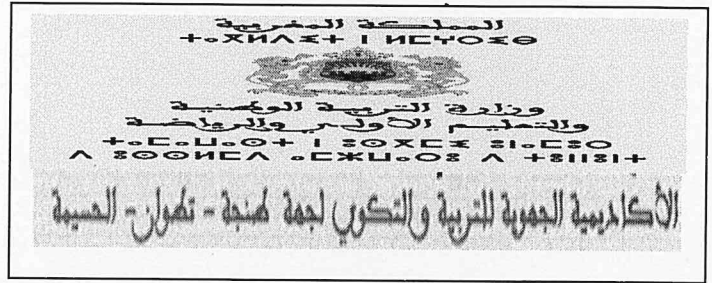 المملكة المغربية
ⵜⴰⴳⵍⴷⵉⵜ ⵏ ⵍⵎⵖⵔⵉⴱ
وزارة التربية الوطنية
والتعليم الأولي والرياضة
ⵜⴰⵎⴰⵡⴰⵙⵜ ⵏ ⵓⵙⴳⵎⵉ ⴰⵏⴰⵎⵓⵔ
ⴷ ⵓⵙⵙⵍⵎⴷ ⴰⵎⵣⵡⴰⵔⵓ ⴷ ⵜⵓⵏⵏⵓⵏⵜ
الأكاديمية الجهوية للتربية والتكوين لجهة طنجة - تطوان - الحسيمة